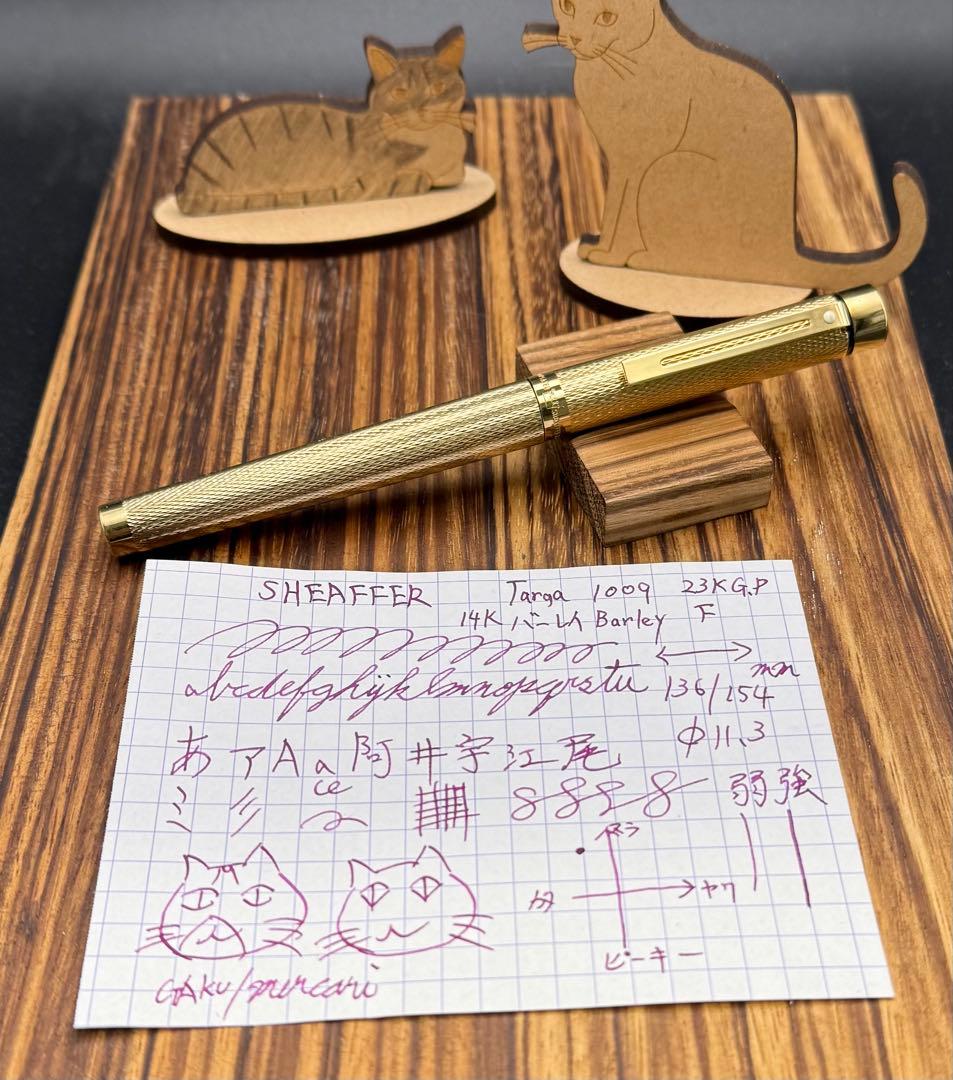 SHEAFFER Targa 1009 23K G.P
14K バーレイ Barley F
abcdefghijklmnopqrstu 136/154 mm
あ ア A a 阿 井 宇 江 尾 φ11.3
ミ 〃 弱 強
ヌラ
カタ ヤワ
ピーキー
GAKU/mercari